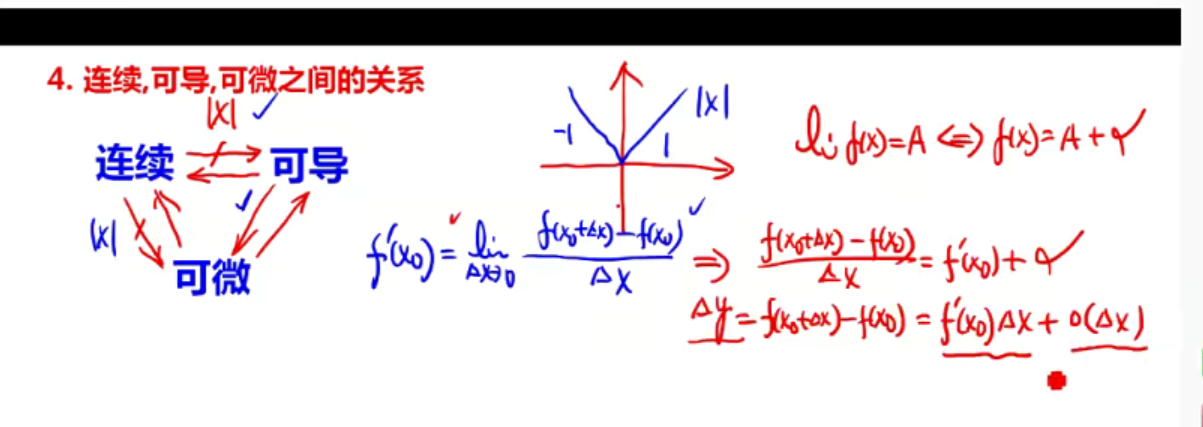 4. 连续,可导,可微之间的关系
|x| ✓
连续 可导
|x| ✓
可微
-1 1 |x|
lim f(x)=A ⇔ f(x)=A+α
f'(x₀)=lim_{Δx→0} \frac{f(x₀+Δx)-f(x₀)}{Δx} ⇒ \frac{f(x₀+Δx)-f(x₀)}{Δx}=f'(x₀)+α
Δy=f(x₀+Δx)-f(x₀)=f'(x₀)Δx+o(Δx)